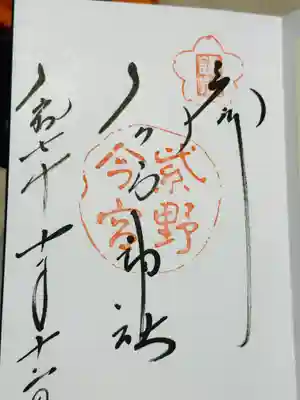 奉拝
今宮神社
紫野
今宮
令和七年 十一月 十六日